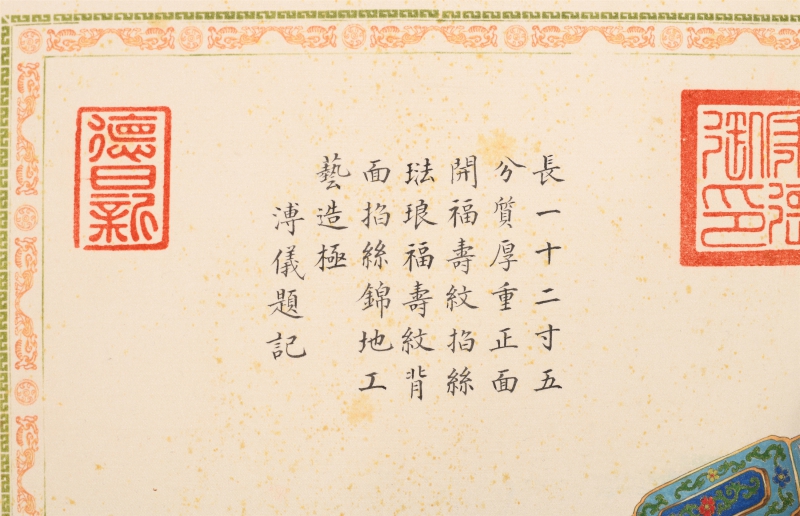 長一十二寸五
分質厚重正面
開福壽紋掐絲
琺琅福壽紋背
面掐絲錦地工
藝造極
溥儀題記
德日新